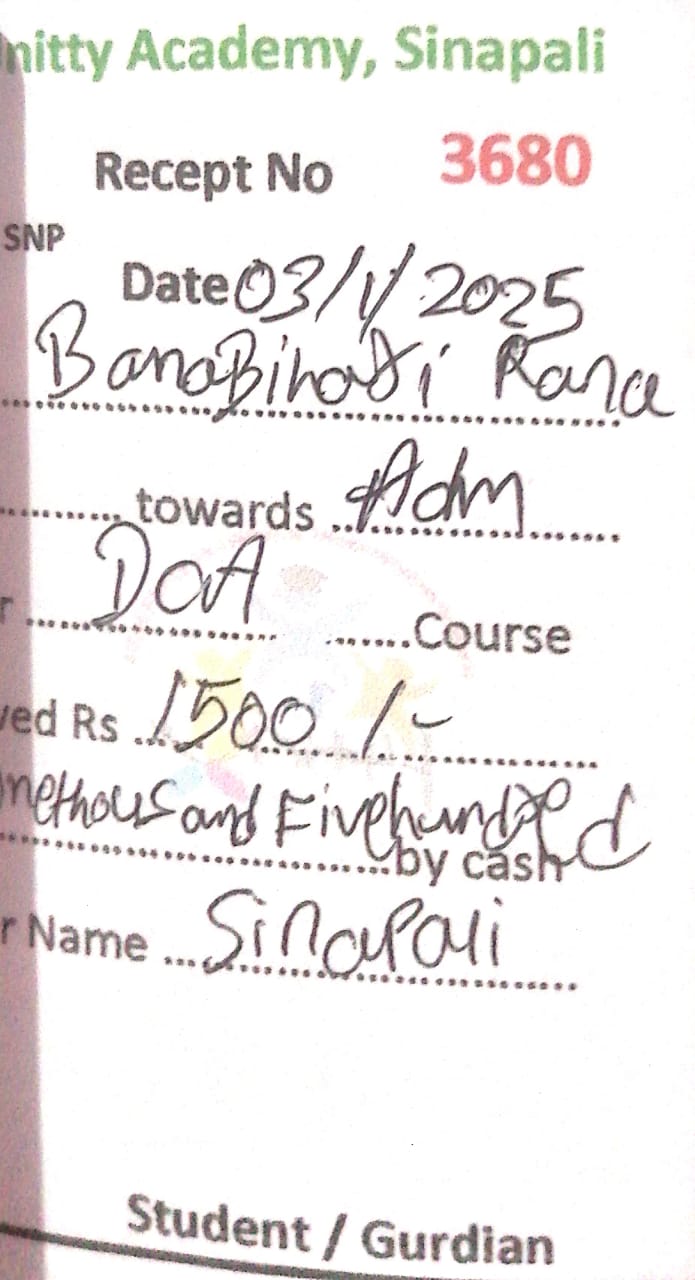 nitty Academy, Sinapali
Recept No 3680
SNP
Date 03/1/2025
BanaBihari Rana
............ towards ..Adm..........
r ....DCA.... .......Course
ved Rs ..1500/-..........
nethousand Fivehundred
..............................by cash
r Name ...Sinapali..........
Student / Gurdian